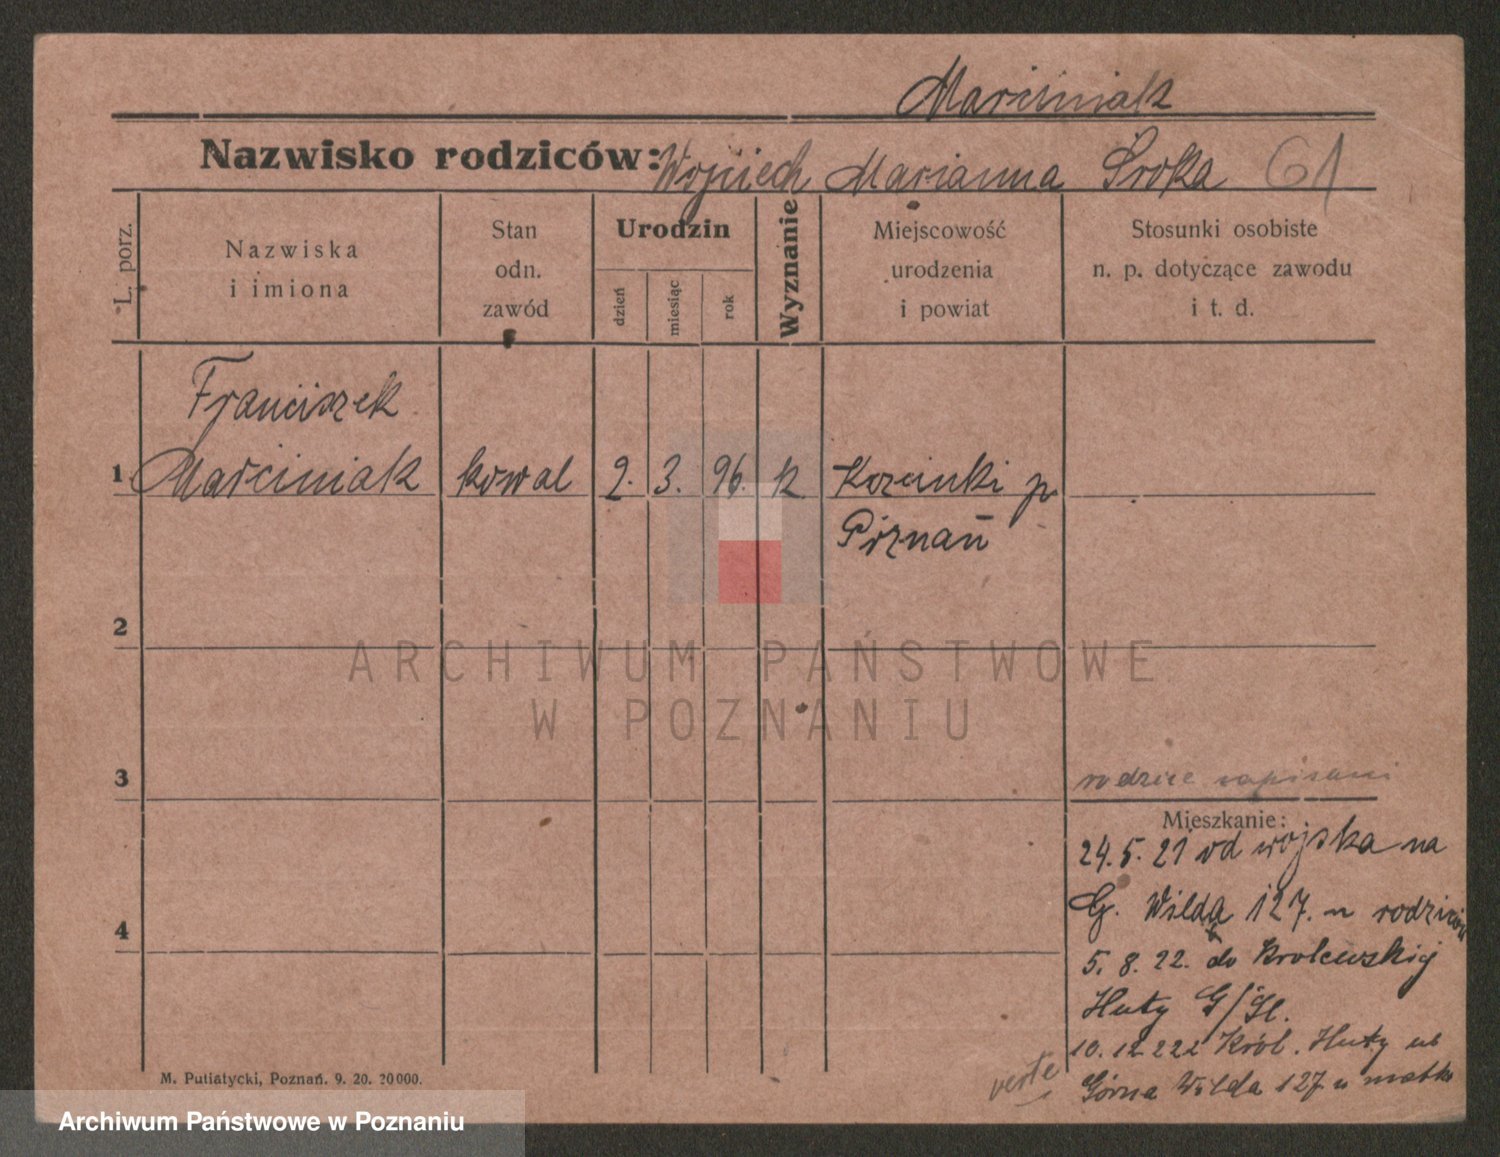 Marciniak
Nazwisko rodziców: Wojciech Marianna Sroka 61
L. porz.
Nazwiska
i imiona
Stan
odn.
zawód
Urodzin
dzień
miesiąc
rok
Wyznanie
Miejscowość
urodzenia
i powiat
Stosunki osobiste
n. p. dotyczące zawodu
i t. d.
Franciszek
1 Marciniak kowal 2. 3. 96. k p.
Poznań
2
ARCHIWUM PAŃSTWOWE
W POZNANIU
3
rodzice zapisani
Mieszkanie:
24.5.21 od wojska na
G. Wilda 127. u rodziców
4
5.8.22. do Krolewskiej
Huty G/Sl.
10.12.222 Król. Huty
Górna Wilda 127 u matki
verte
M. Putiatycki, Poznań. 9. 20. 20000.
Archiwum Państwowe w Poznaniu